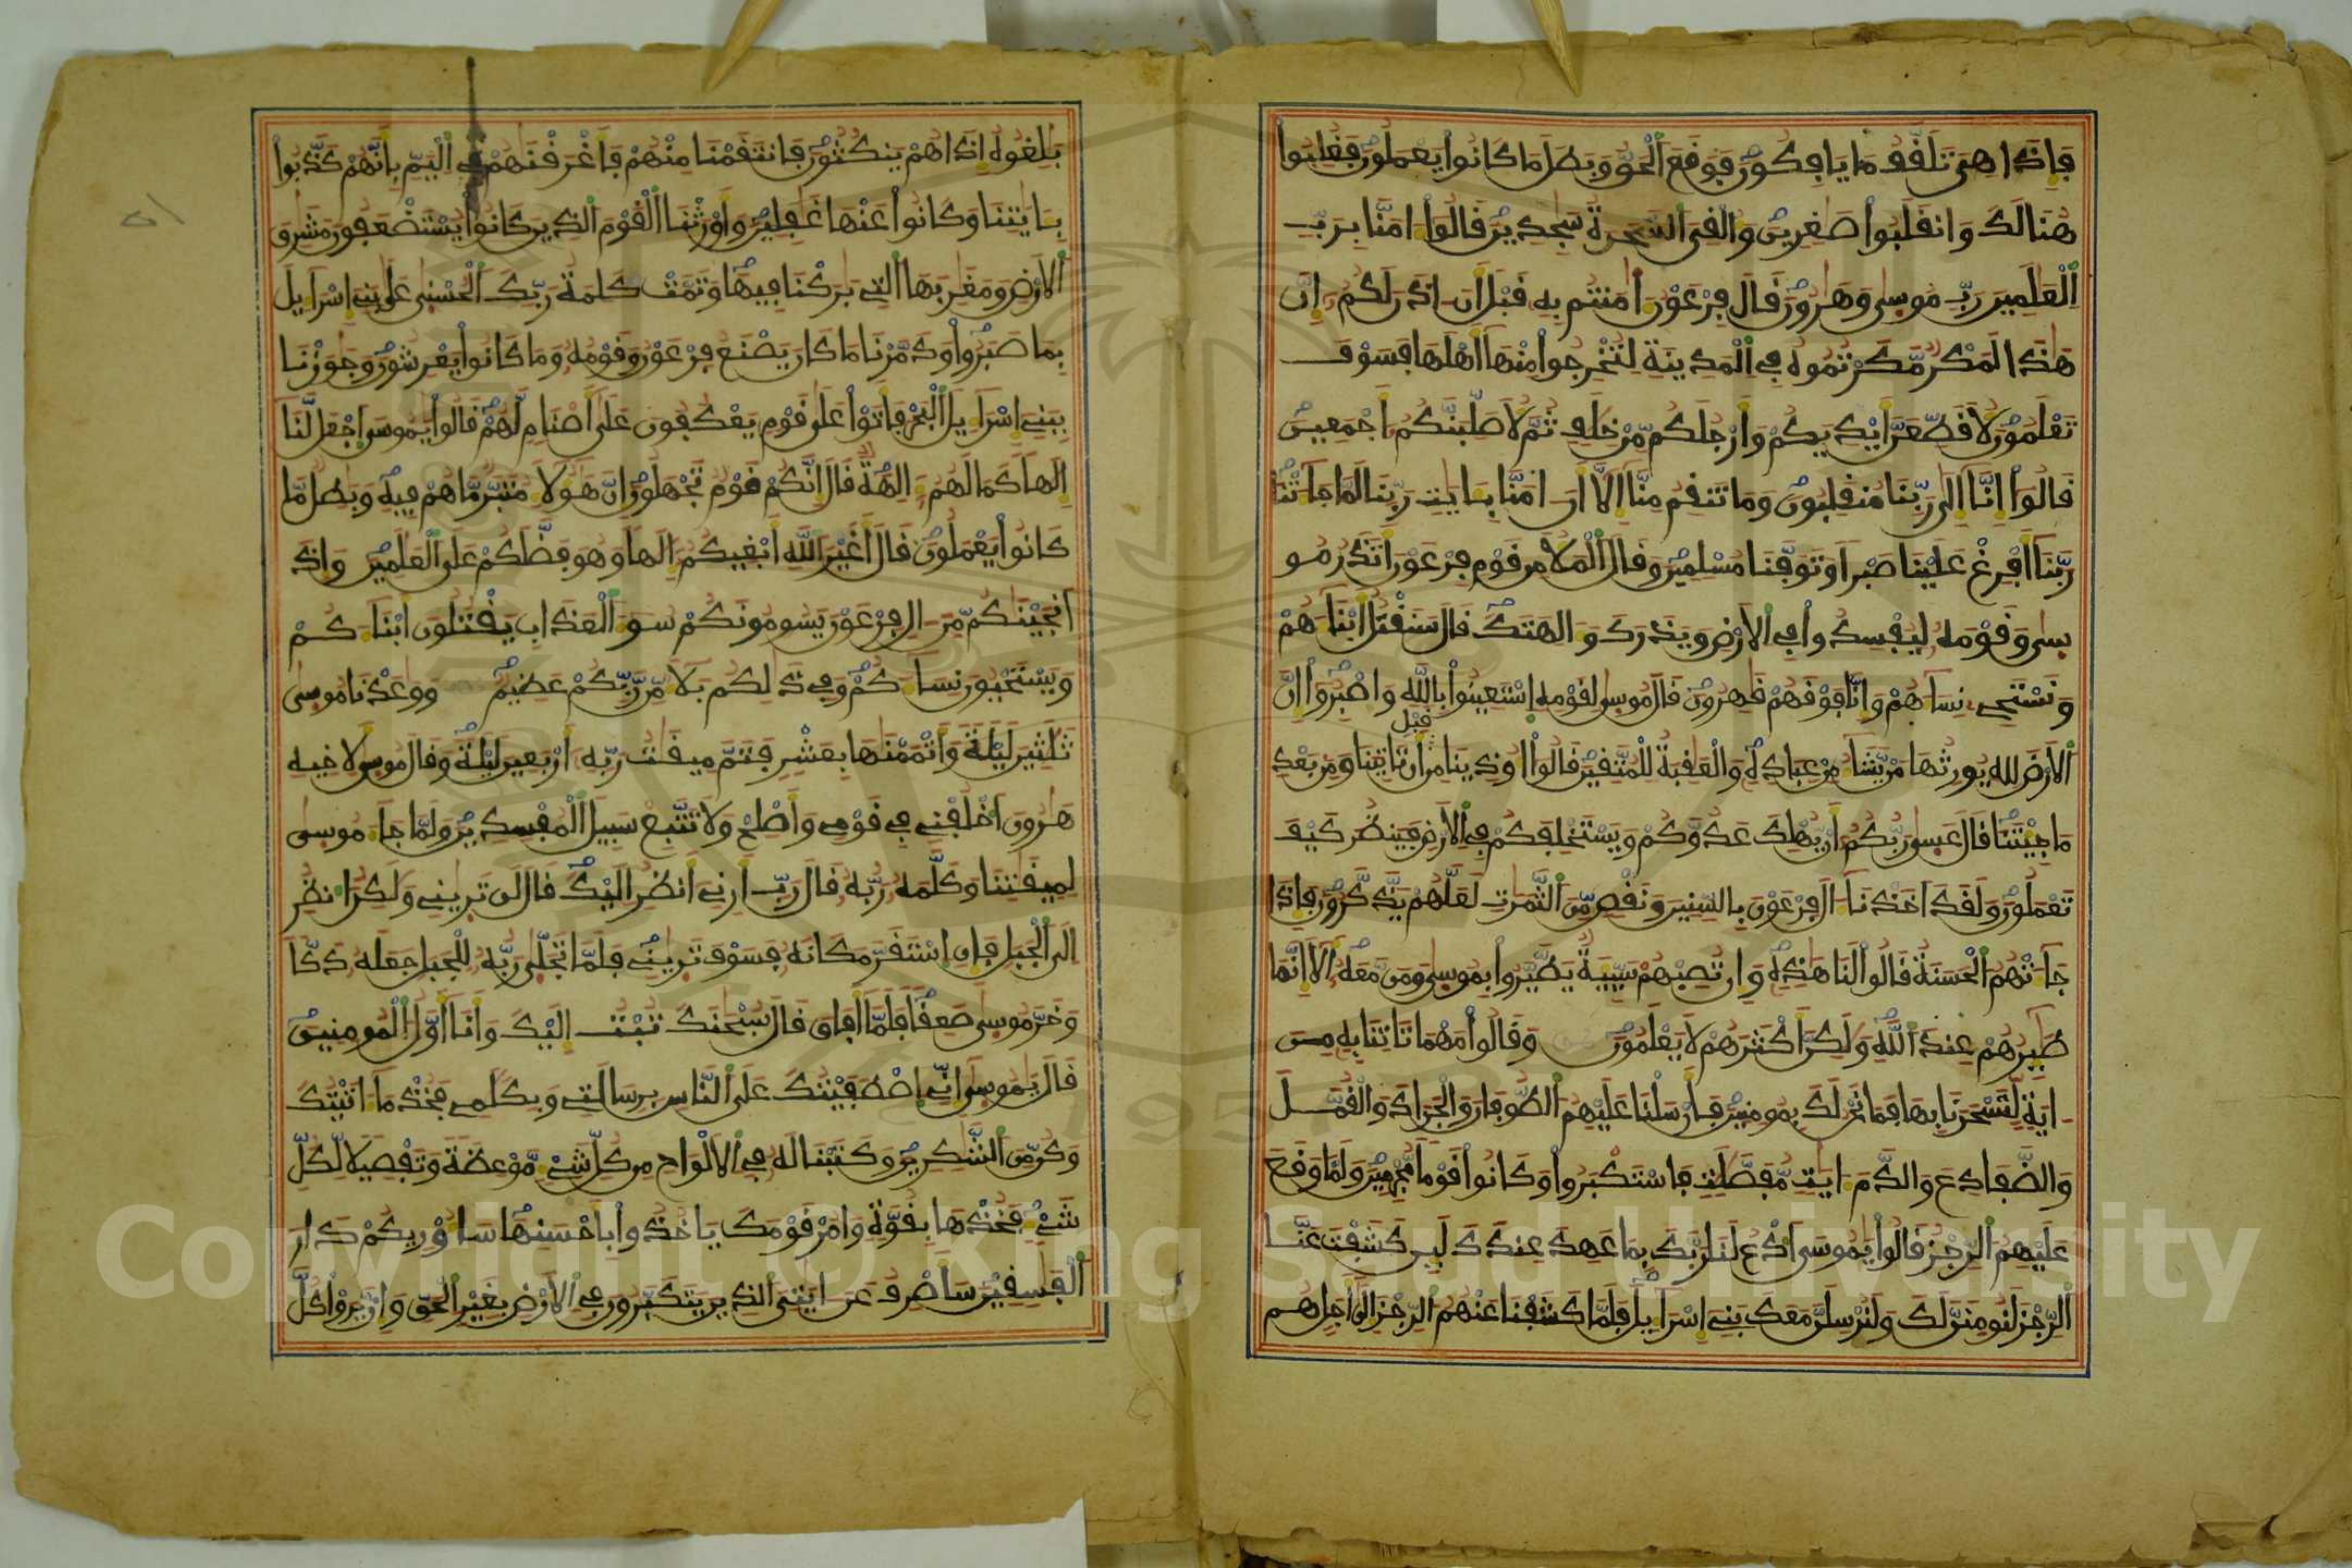 فَإِذَا هِىَ تَلَقَّفُ مَا يَافِكُونَ فَوَقَعَ الْحَقُّ وَبَطَلَ مَا كَانُوا يَعْمَلُونَ فَغُلِبُوا
هُنَالِكَ وَانقَلَبُوا صَغِرِينَ وَأُلْقِىَ السَّحَرَةُ سَجِدِينَ قَالُوا ءامَنَّا بِرَبِّ
الْعَلَمِينَ رَبِّ مُوسِى وَهَرُونَ قَالَ فِرْعَوْنُ ءَامَنتُم بِهِ قَبْلَ أَنَ اذَنَ لَكُمُ إِنَّ
هَذَا لَمَكْرٌ مَّكَرْتُمُوهُ فِى الْمَدِينَةِ لِتُخْرِجُوا مِنْهَا أَهْلَهَا فَسَوْفَ
تَعْلَمُونَ لَأُقَطِّعَنَّ أَيْدِيَكُمْ وَأَرْجُلَكُم مِّنْ خِلَفٍ ثُمَّ لَأُصَلِّبَنَّكُمُ أَجْمَعِينَ
قَالُوا إِنَّا إِلَى رَبِّنَا مُنقَلِبُونَ وَمَا تَنقِمُ مِنَّا إِلَّا أَنَ امَنَّا بِـَايَتِ رَبِّنَا لَمَّا جَاءَتْنَا
رَبَّنَا أَفْرِغْ عَلَيْنَا صَبْرًا وَتَوَفَّنَا مُسْلِمِينَ وَقَالَ الْمَلَأُ مِن قَوْمِ فِرْعَوْنَ أَتَذَرُ مُو
سِى وَقَوْمَهُ لِيُفْسِدُوا فِى الْأَرْضِ وَيَذَرَكَ وَءَالِهَتَكَ قَالَ سَنَقْتُلُ أَبْنَاءَهُمْ
وَنَسْتَحْىِ نِسَاءَهُمْ وَإِنَّا فَوْقَهُمْ قَهِرُونَ قَالَ مُوسِى لِقَوْمِهِ اسْتَعِينُوا بِاللَّهِ وَاصْبِرُوا إِنَّ
الْأَرْضَ لِلهِ يُورِثُهَا مَنْ يَّشَاءُ مِنْ عِبَادِهِ وَالْعَقِبَةُ لِلْمُتَّقِينَ قَالُوا أُوذِينَا مِن قَبْلِ أَن تَاتِيَنَا وَمِن بَعْدِ
مَا جِئْتَنَا قَالَ عَسِى رَبُّكُمُ أَنْ يُّهْلِكَ عَدُوَّكُمْ وَيَسْتَخْلِفَكُمْ فِى الْأَرْضِ فَيَنظُرَ كَيْفَ
تَعْمَلُونَ وَلَقَدَ اَخَذْنَا ءَالَ فِرْعَوْنَ بِالسِّنِينَ وَنَقْصٍ مِّنَ الثَّمَرَتِ لَعَلَّهُمْ يَذَّكَّرُونَ فَإِذَا
جَاءَتْهُمُ الْحَسَنَةُ قَالُوا لَنَا هَذِهِ وَإِن تُصِبْهُمْ سَيِّئَةٌ يَطَّيَّرُوا بِمُوسِى وَمَن مَّعَهُ أَلَا إِنَّمَا
طَئِرُهُمْ عِندَ اللَّهِ وَلَكِنَّ أَكْثَرَهُمْ لَا يَعْلَمُونَ وَقَالُوا مَهْمَا تَاتِنَا بِهِ مِنَ
ايَةٍ لِّتَسْحَرَنَا بِهَا فَمَا نَحْنُ لَكَ بِمُومِنِينَ فَأَرْسَلْنَا عَلَيْهِمُ الطُّوفَانَ وَالْجَرَادَ وَالْقُمَّلَ
وَالضَّفَادِعَ وَالدَّمَ ءَايَتٍ مُّفَصَّلَتٍ فَاسْتَكْبَرُوا وَكَانُوا قَوْمًا مُّجْرِمِينَ وَلَمَّا وَقَعَ
عَلَيْهِمُ الرِّجْزُ قَالُوا يَمُوسَى ادْعُ لَنَا رَبَّكَ بِمَا عَهِدَ عِندَكَ لَئِن كَشَفْتَ عَنَّا
الرِّجْزَ لَنُومِنَنَّ لَكَ وَلَنُرْسِلَنَّ مَعَكَ بَنِى إِسْرَاءِيلَ فَلَمَّا كَشَفْنَا عَنْهُمُ الرِّجْزَ إِلَى أَجَلٍ هُم
بَلِغُوهُ إِذَا هُمْ يَنكُثُونَ فَانتَقَمْنَا مِنْهُمْ فَأَغْرَقْنَهُمْ فِى الْيَمِّ بِأَنَّهُمْ كَذَّبُوا
بِـَايَتِنَا وَكَانُوا عَنْهَا غَفِلِينَ وَأَوْرَثْنَا الْقَوْمَ الذِينَ كَانُوا يُسْتَضْعَفُونَ مَشَرِقَ
الْأَرْضِ وَمَغَرِبَهَا التِى بَرَكْنَا فِيهَا وَتَمَّتْ كَلِمَةُ رَبِّكَ الْحُسْنِى عَلَى بَنِى إِسْرَاءِيلَ
بِمَا صَبَرُوا وَدَمَّرْنَا مَا كَانَ يَصْنَعُ فِرْعَوْنُ وَقَوْمُهُ وَمَا كَانُوا يَعْرِشُونَ وَجَوَزْنَا
بِبَنِى إِسْرَاءِيلَ الْبَحْرَ فَأَتَوْا عَلَى قَوْمٍ يَعْكُفُونَ عَلَى أَصْنَامٍ لَّهُمْ قَالُوا يَمُوسَى اجْعَل لَّنَا
إِلَهًا كَمَا لَهُمُ ءَالِهَةٌ قَالَ إِنَّكُمْ قَوْمٌ تَجْهَلُونَ إِنَّ هَؤُلَاءِ مُتَبَّرٌ مَّا هُمْ فِيهِ وَبَطِلٌ مَّا
كَانُوا يَعْمَلُونَ قَالَ أَغَيْرَ اللَّهِ أَبْغِيكُمُ إِلَهًا وَهُوَ فَضَّلَكُمْ عَلَى الْعَلَمِينَ وَإِذَ
اَنجَيْنَكُم مِّنَ ءَالِ فِرْعَوْنَ يَسُومُونَكُمْ سُوءَ الْعَذَابِ يَقْتُلُونَ أَبْنَاءَكُمْ
وَيَسْتَحْيُونَ نِسَاءَكُمْ وَفِى ذَلِكُم بَلَاءٌ مِّن رَّبِّكُمْ عَظِيمٌ وَوَعَدْنَا مُوسِى
ثَلَثِينَ لَيْلَةً وَأَتْمَمْنَهَا بِعَشْرٍ فَتَمَّ مِيقَتُ رَبِّهِ أَرْبَعِينَ لَيْلَةً وَقَالَ مُوسِى لِأَخِيهِ
هَرُونَ اَخْلُفْنِى فِى قَوْمِى وَأَصْلِحْ وَلَا تَتَّبِعْ سَبِيلَ الْمُفْسِدِينَ وَلَمَّا جَاءَ مُوسِى
لِمِيقَتِنَا وَكَلَّمَهُ رَبُّهُ قَالَ رَبِّ أَرِنِى أَنظُرِ الَيْكَ قَالَ لَن تَرِينِى وَلَكِنُ انظُرِ
إِلَى الْجَبَلِ فَإِنِ اسْتَقَرَّ مَكَانَهُ فَسَوْفَ تَرِينِى فَلَمَّا تَجَلَّى رَبُّهُ لِلْجَبَلِ جَعَلَهُ دَكًّا
وَخَرَّ مُوسِى صَعِقًا فَلَمَّا أَفَاقَ قَالَ سُبْحَنَكَ تُبْتُ إِلَيْكَ وَأَنَا أَوَّلُ الْمُومِنِينَ
قَالَ يَمُوسِى إِنِّى اصْطَفَيْتُكَ عَلَى النَّاسِ بِرِسَالَتِى وَبِكَلَمِى فَخُذْ مَا ءَاتَيْتُكَ
وَكُن مِّنَ الشَّكِرِينَ وَكَتَبْنَا لَهُ فِى الْأَلْوَاحِ مِن كُلِّ شَىْءٍ مَّوْعِظَةً وَتَفْصِيلًا لِّكُلِّ
شَىْءٍ فَخُذْهَا بِقُوَّةٍ وَامُرْ قَوْمَكَ يَاخُذُوا بِأَحْسَنِهَا سَأُوْرِيكُمْ دَارَ
الْفَسِقِينَ سَأَصْرِفُ عَنَ ايَتِىَ الذِينَ يَتَكَبَّرُونَ فِى الْأَرْضِ بِغَيْرِ الْحَقِّ وَإِنْ يَّرَوْا كُلَّ
Copyright © King Saud University
1957